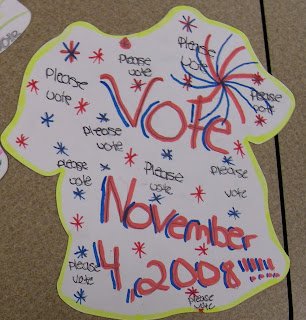 Please
vote
Please
vote
Please
vote
Please
vote
Please
vote
Vote
Please
vote
Please
vote
Please
vote
Please
vote
November
4, 2008!!!!!!
Please
vote
Please
vote